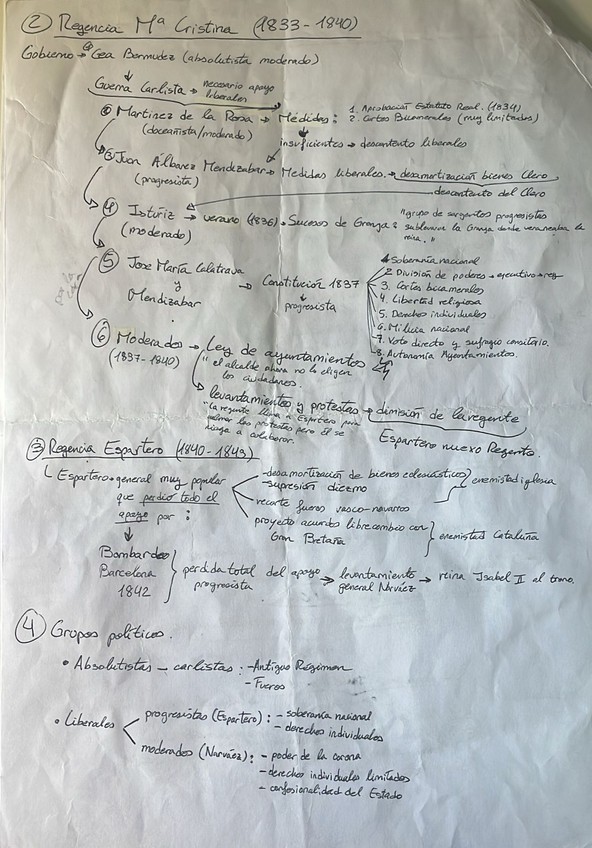 ② Regencia Mª Cristina (1833-1840)
Gobierno → ① Cea Bermúdez (absolutista moderado)
↓
Guerra Carlista → necesario apoyo liberales
② Martínez de la Rosa → Medidas: 1. Aprobación Estatuto Real. (1834)
(doceañista/moderado) 2. Cortes Bicamerales (muy limitadas)
insuficientes → descontento liberales
③ Juan Álvarez Mendizabar → Medidas liberales. → desamortización bienes Clero
(progresista)
descontento del Clero
④ Istúriz → verano (1836) → Sucesos de Granja: "grupo de sargentos progresistas
(moderado) sublevaron la Granja donde veraneaba la reina."
⑤ José María Calatrava → Constitución 1837
y → progresista
Mendizabar
1. Soberanía nacional
2. División de poderes → ejecutivo → rey
3. Cortes bicamerales
4. Libertad religiosa
5. Derechos individuales
6. Milicia nacional
7. Voto directo y sufragio censitario.
8. Autonomía Ayuntamientos.
⑥ Moderados → Ley de ayuntamientos
(1837-1840) "el alcalde ahora no lo eligen
los ciudadanos.
levantamientos y protestas → dimisión de la regente
"La regente llama a Espartero para
calmar las protestas pero él se
niega a colaborar.
Espartero nuevo Regente.
③ Regencia Espartero (1840-1843)
Espartero → general muy popular
que perdió todo el
apoyo por:
- desamortización de bienes eclesiásticos
- supresión diezmo
enemistad iglesia
recorte fueros vasco-navarros
proyecto acuerdo librecambio con
Gran Bretaña
enemistad Cataluña
Bombardeo
Barcelona
1842
perdida total del apoyo → levantamiento → reina Isabel II al trono.
progresista general Narváez
④ Grupos políticos.
• Absolutistas - carlistas: - Antiguo Régimen
- Fueros
• Liberales
progresistas (Espartero): - soberanía nacional
- derechos individuales
moderados (Narváez): - poder de la corona
- derechos individuales limitados
- confesionalidad del Estado